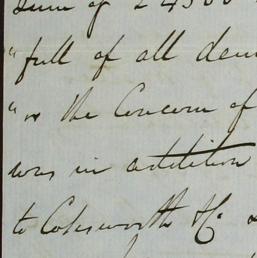 Sum of £ 4500
"full of all dem
"or the Concern of
was in addition
to Colesworth & Co.